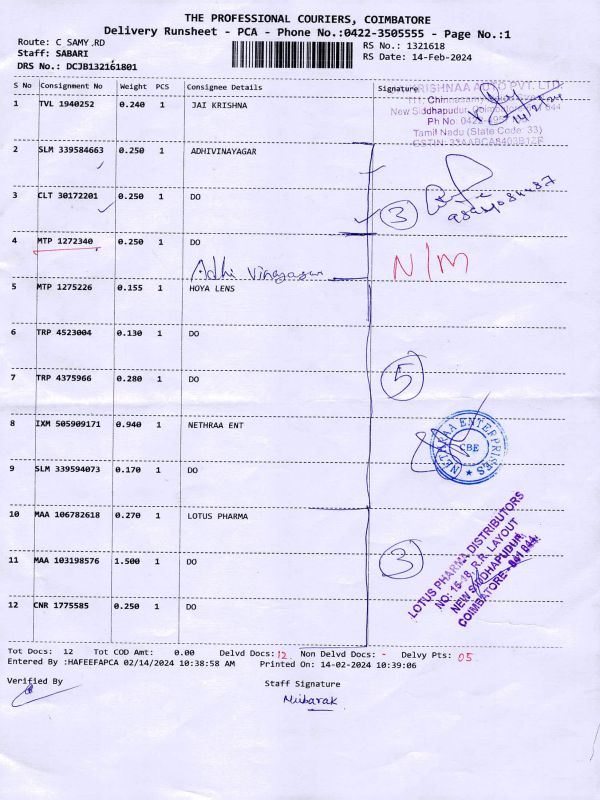 THE PROFESSIONAL COURIERS, COIMBATORE
Delivery Runsheet - PCA - Phone No.:0422-3505555 - Page No.:1
Route: C SAMY.RD
Staff: SABARI
DRS No.: DCJB132161801
RS No.: 1321618
RS Date: 14-Feb-2024
S No Consignment No Weight PCS Consignee Details Signature
1 TVL 1940252 0.240 1 JAI KRISHNA
KRISHNAA AUTO PVT. LTD.
New Siddhapudur, Coimbatore
Ph No: 0422
Tamil Nadu (State Code: 33)
14/2/24
2 SLM 339584663 0.250 1 ADHIVINAYAGAR
3 CLT 30172201 0.250 1 DO
3
4 MTP 1272340 0.250 1 DO
Adhi Vinayagar
N/M
5 MTP 1275226 0.155 1 HOYA LENS
6 TRP 4523004 0.130 1 DO
7 TRP 4375966 0.280 1 DO
5
8 IXM 505909171 0.940 1 NETHRAA ENT
NETHRAA ENTERPRISES
CBE
9 SLM 339594073 0.170 1 DO
10 MAA 106782618 0.270 1 LOTUS PHARMA
11 MAA 103198576 1.500 1 DO
3
LOTUS PHARMA DISTRIBUTORS
NO: 15-18, R.R. LAYOUT
NEW SIDDHAPUDUR,
COIMBATORE - 641 044.
12 CNR 1775585 0.250 1 DO
Tot Docs: 12 Tot COD Amt: 0.00 Delvd Docs: 12 Non Delvd Docs: - Delvy Pts: 05
Entered By :HAFEEFAPCA 02/14/2024 10:38:58 AM Printed On: 14-02-2024 10:39:06
Verified By
Staff Signature
Mubarak